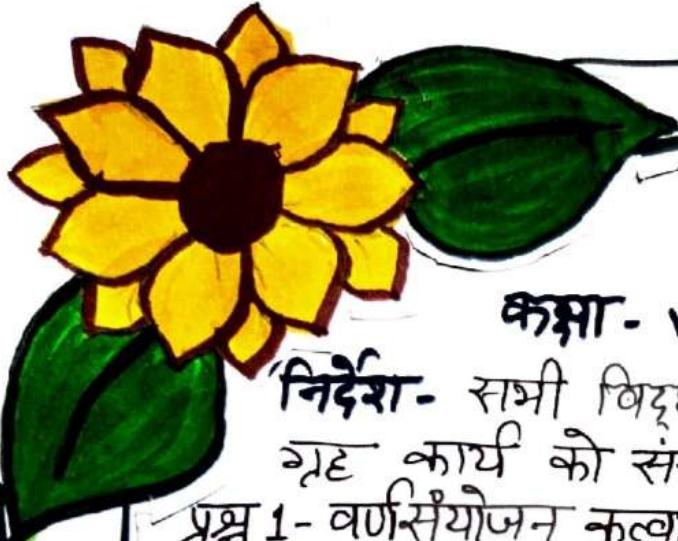 कक्षा-
निर्देश- सभी
ग्रह कार्य को
प्रश्न 1- वर्णसंयोजन